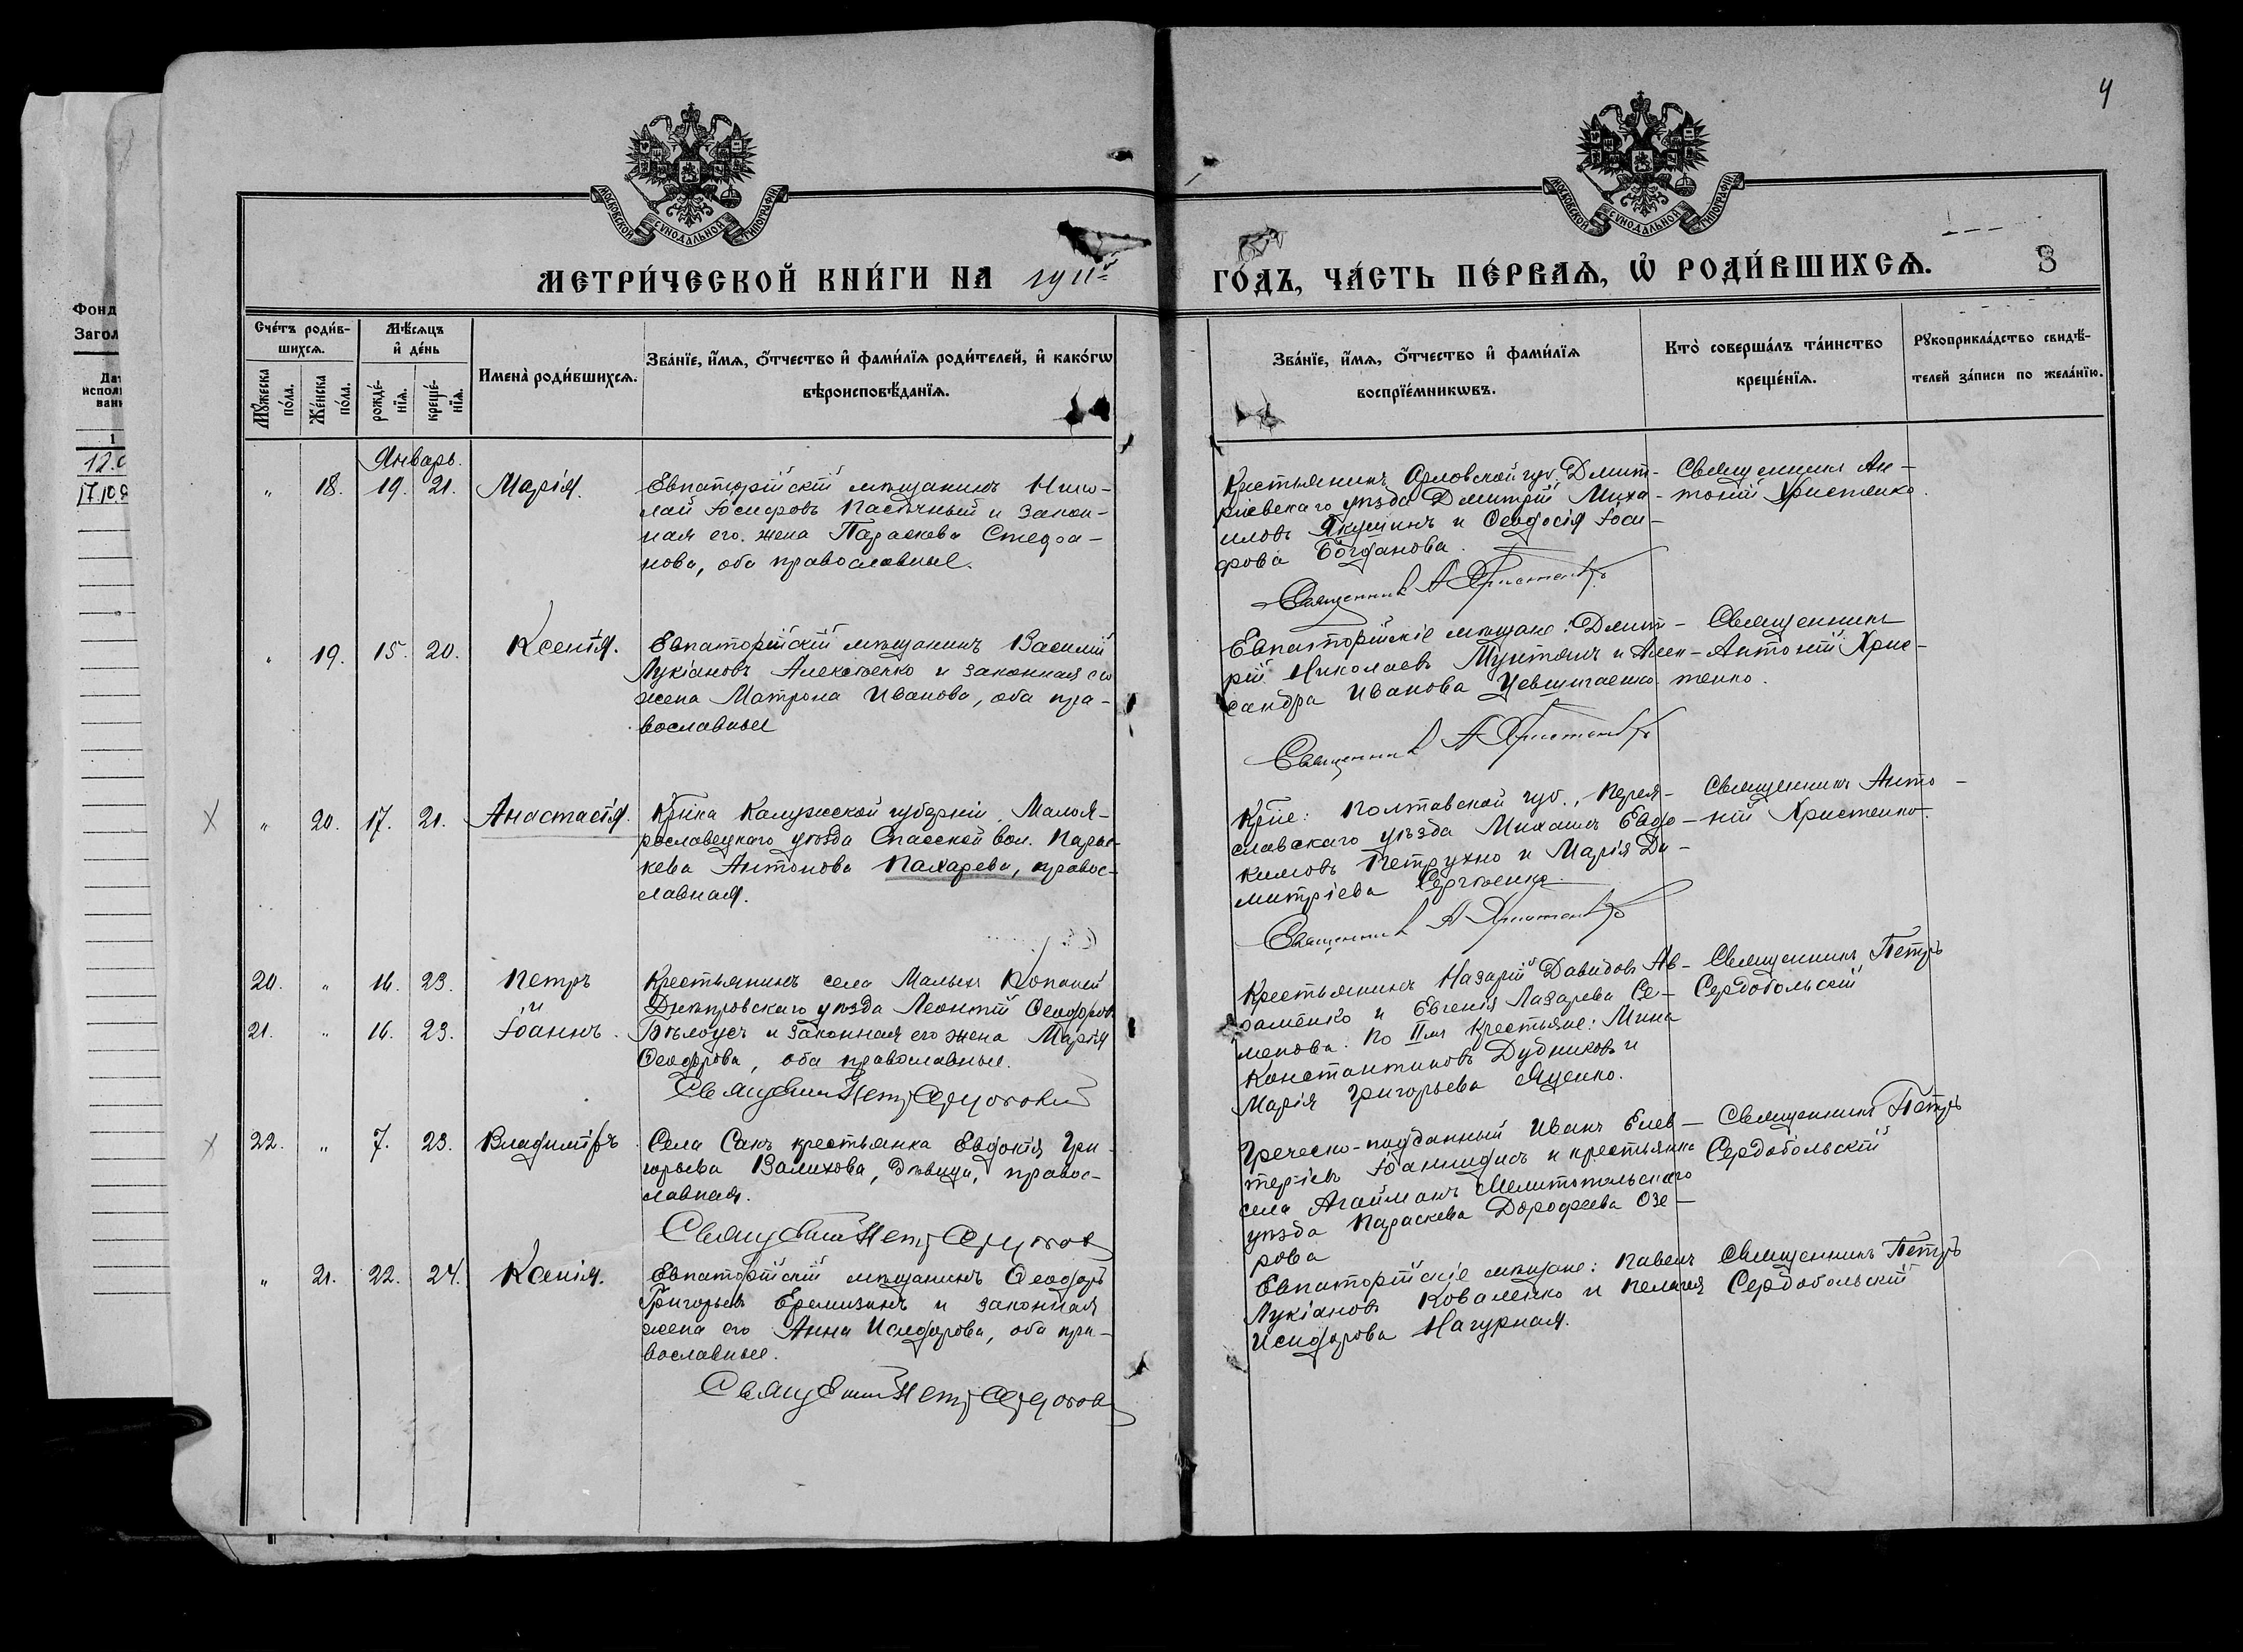 4
МОСКОВСКОЙ СУНОДАЛЬНОЙ ТИПОГРАФІИ
МОСКОВСКОЙ СУНОДАЛЬНОЙ ТИПОГРАФІИ
МЕТРИ́ЧЕСКОЙ КНИ́ГИ НА 1911й
ГО́ДЪ, ЧА́СТЬ ПЕ́РВАѦ, Ѡ РОДИ́ВШИХСѦ.
3
Фонд
Загол
1
12.0
17.10.9
Сче́тъ роди́в-
шихсѧ.
Мꙋ́жеска
по́ла.
Же́нска
по́ла.
Мѣ́сѧцъ
и҆ де́нь
рожде́-
нїѧ.
креще́-
нїѧ.
Имена̀ роди́вшихсѧ.
Зва́нїе, и҆́мѧ, ѻ҆́тчество и҆ фами́лїѧ роди́телей, и҆ како́гѡ
вѣроисповѣ́данїѧ.
Зва́нїе, и҆́мѧ, ѻ҆́тчество и҆ фами́лїѧ
воспрїе́мникѡвъ.
Кто̀ соверша́лъ та́инство
креще́нїѧ.
Рꙋкоприкла́дство свидѣ́-
телей за́писи по жела́нїю.
Январь.
" 18. 19. 21. Марія.
Евпаторійскій мѣщанинъ Нико-
лай Іосифовъ Пасѣчный и закон-
ная его жена Параскева Стефа-
нова, оба православные.
Крестьянинъ Орловской губ. Дмит-
ріевскаго уѣзда Димитрій Миха-
иловъ Якушинъ и Ѳеодосія Іоси-
фова Богданова.
Священникъ Ан-
тоній Христенко.
Священникъ А Христенко
" 19. 15. 20. Ксенія.
Евпаторійскій мѣщанинъ Василій
Лукіановъ Алексѣенко и законная его
жена Матрона Иванова, оба пра-
вославные
Евпаторійскіе мѣщане: Димит-
рій Николаевъ Мунтянъ и Алек-
сандра Иванова
Священникъ
Антоній Хрис-
тенко.
Священникъ А Христенко
" 20. 17. 21. Анастасія.
Кр꙼нка Калужской губерніи, Малоя-
рославецкаго уѣзда Спасской вол. Парас-
кева Антонова Пахарева, правос-
лавная.
Кр꙼не: Полтавской губ., Перея-
славскаго уѣзда Михаилъ Евдо-
кимовъ Петрухно и Марія Ди-
митріева Сергѣенко.
Священникъ Анто-
ній Христенко.
Священникъ А Христенко
20. " 16. 23. Петръ
и
21. " 16. 23. Іоаннъ.
Крестьянинъ села Малыхъ Копаней
Днѣпровскаго уѣзда Леонтій Ѳеодоровъ
Бѣлоусъ и законная его жена Марія
Ѳеодорова, оба православные.
Священникъ Петръ
Крестьянинъ Назарій Давидовъ Ав-
раменко и Евгенія Лазарева Се-
менова. По IIмъ крестьяне: Мина
Константиновъ Дубниковъ и
Марія Григорьева Яценко.
Священникъ Петръ
Сердобольскій
22. " 7. 23. Владиміръ
Села Сакъ крестьянка Евдокія Гри-
горьева Валихова, дѣвица, правос-
лавная.
Священникъ Петръ
Греческо-подданный Иванъ Елев-
теріевъ Іоаннидисъ и крестьянка
села Агайманъ Мелитопольскаго
уѣзда Параскева Дорофеева Озе-
рова
Священникъ Петръ
Сердобольскій
" 21. 22. 24. Ксенія.
Евпаторійскій мѣщанинъ Ѳеодоръ
Григорьевъ Еремизинъ и законная
жена его Анна Исидорова, оба пра-
вославные.
Священникъ Петръ
Евпаторійскіе мѣщане: Павелъ
Лукіановъ Коваленко и Пелагія
Исидорова Нагурная.
Священникъ Петръ
Сердобольскій